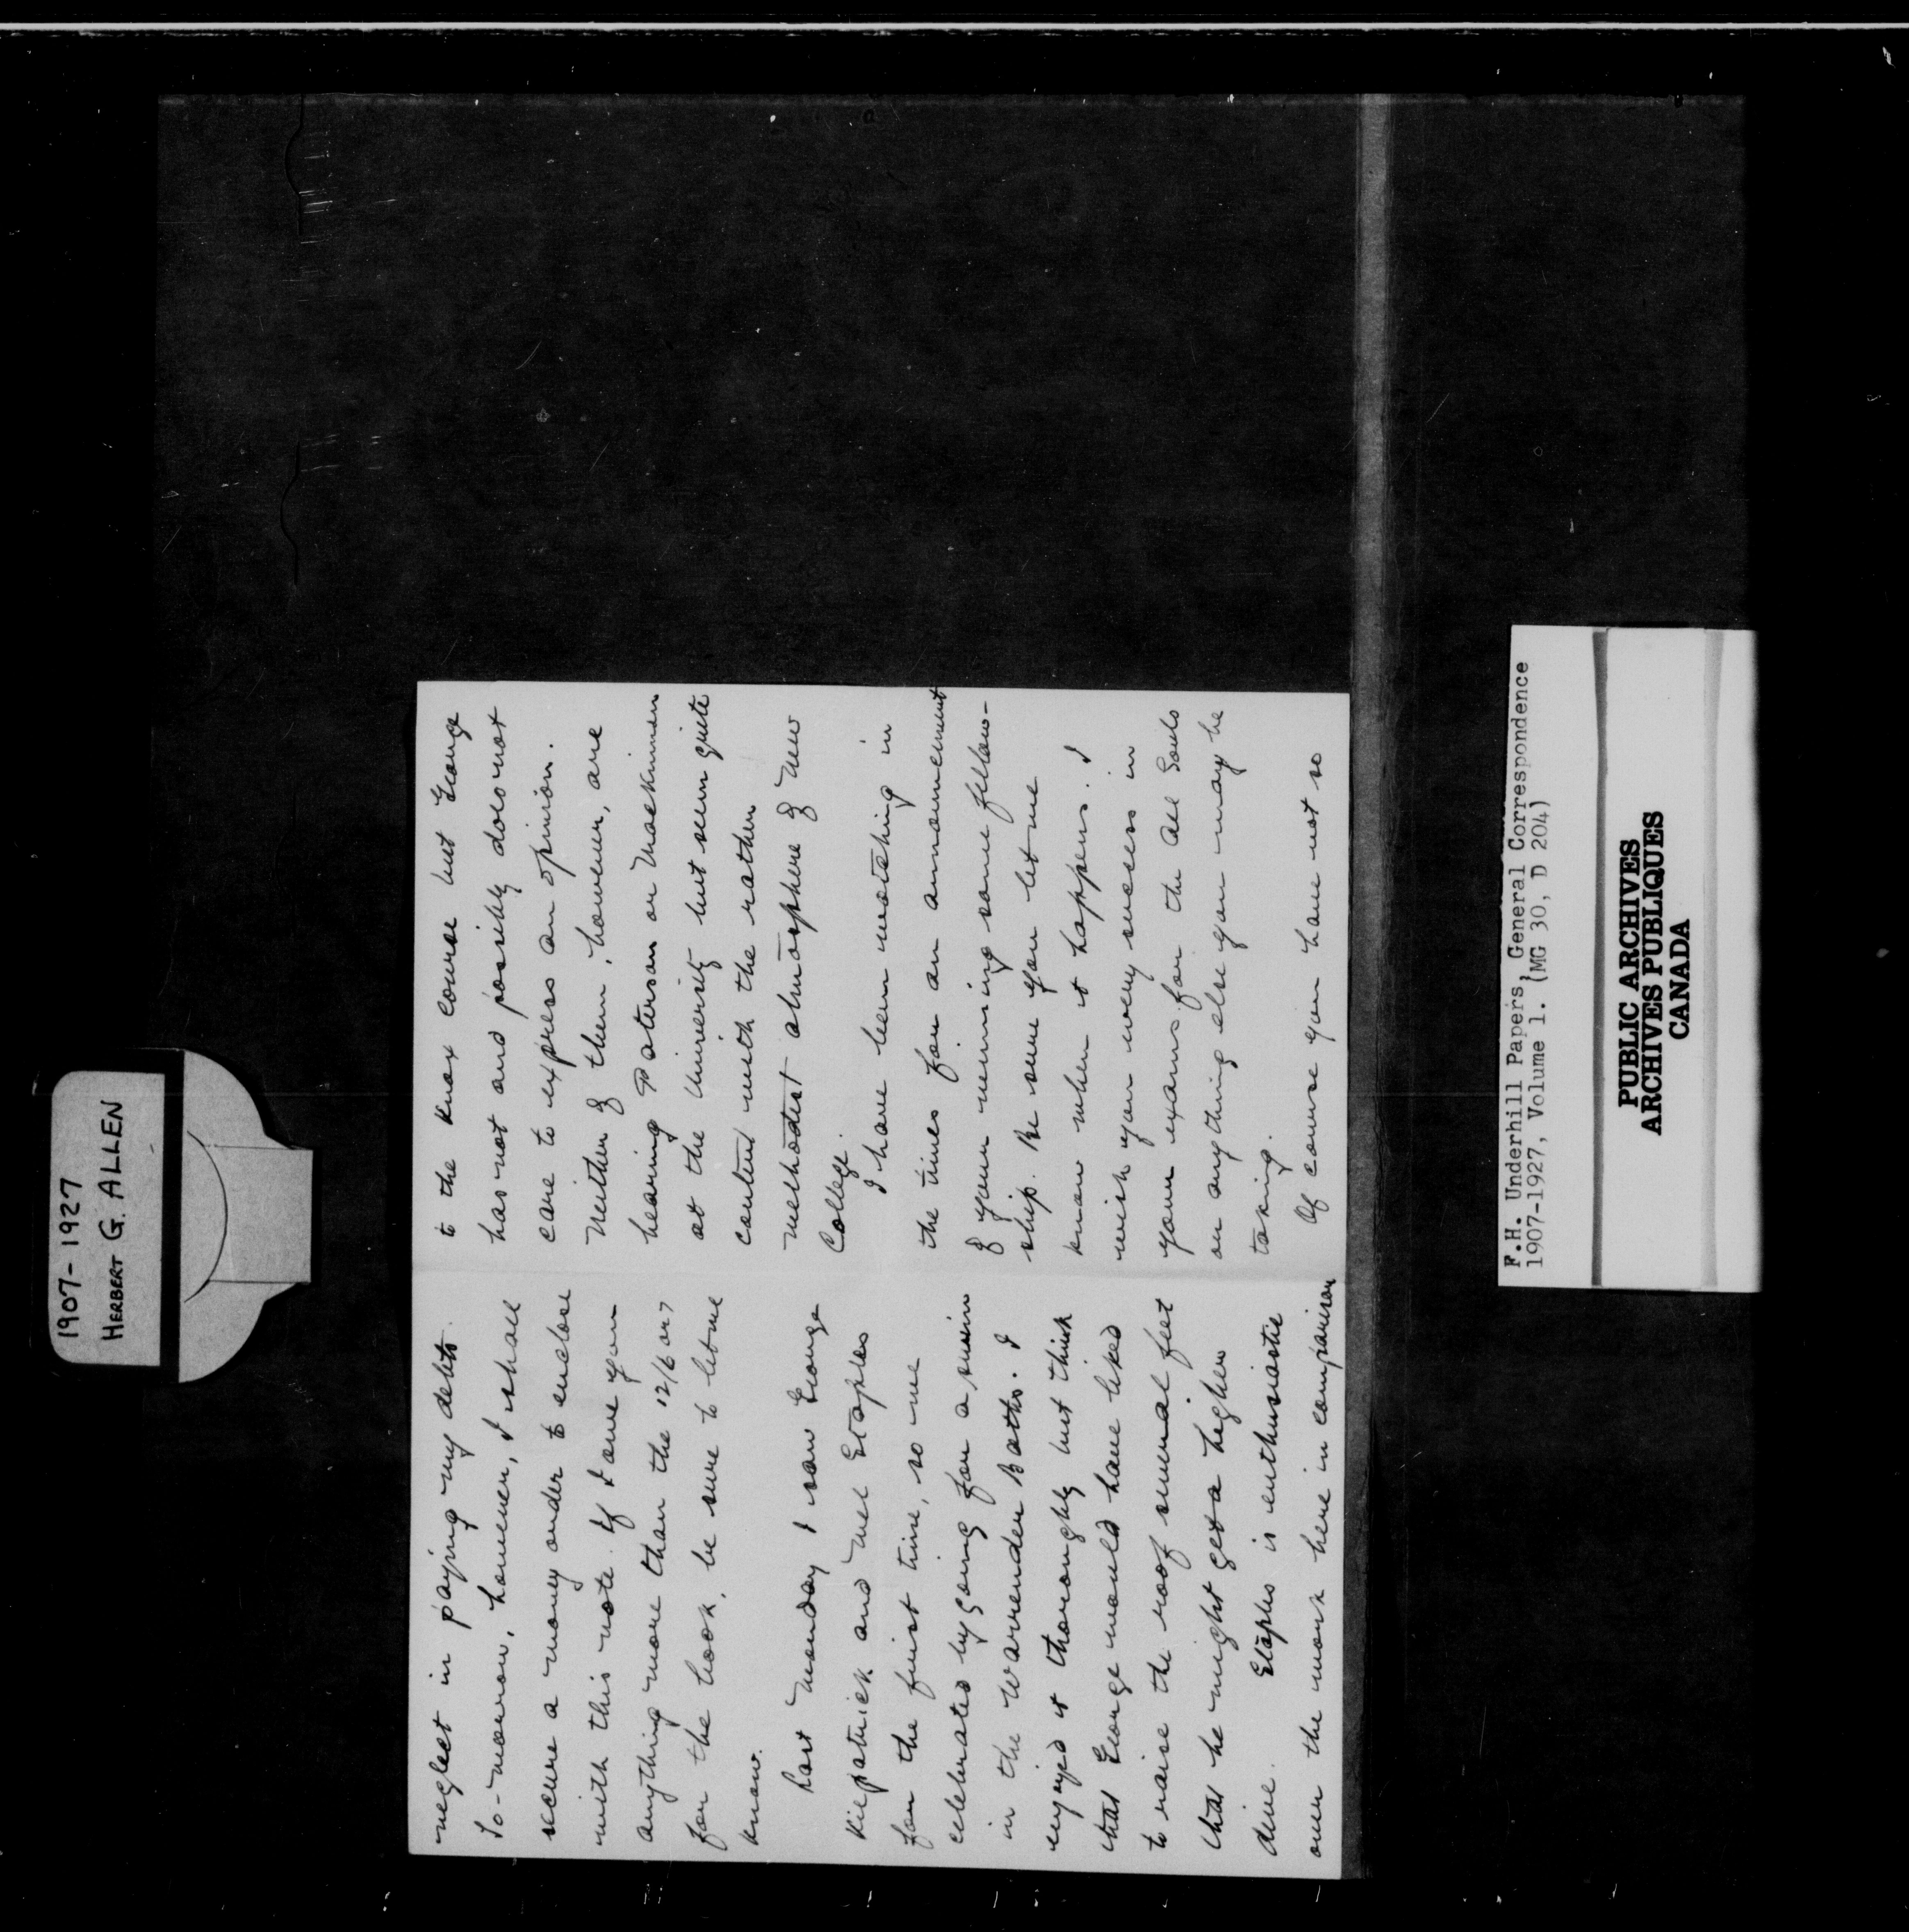 1907-1927
HERBERT G. ALLEN
neglect in paying my debts.
To-morrow, however, I shall
secure a money order to enclose
with this note. If I owe you
anything more than the 12/6 or 7
for the book, be sure to let me
know.
Last Monday I saw George
Kilpatrick and Mel Staples
for the first time, so we
celebrated by going for a swim
in the Warrender Baths. I
enjoyed it thoroughly but think
that George would have liked
to raise the roof several feet
that he might get a higher
dive. Staples is enthusiastic
over the work here in comparison
to the Knox course but George
has not and possibly does not
care to express an opinion.
Neither of them, however, are
hearing Paterson or Mackinnon
at the University but seem quite
content with the rather
methodist atmosphere of New
College.
I have been watching in
the times for an announcement
of your winning some fellow-
ship. Be sure you let me
know when it happens. I
wish you every success in
your exams for the All Souls
or anything else you may be
taking.
Of course you have not so
F.H. Underhill Papers, General Correspondence
1907-1927, Volume 1. (MG 30, D 204)
PUBLIC ARCHIVES
ARCHIVES PUBLIQUES
CANADA